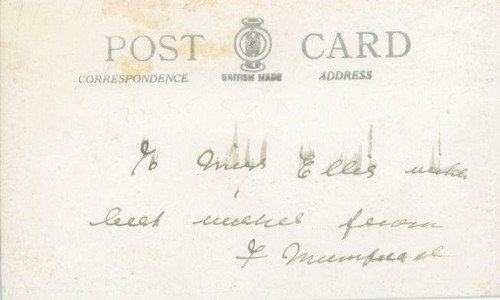 POST CARD
CORRESPONDENCE BRITISH MADE ADDRESS
To Miss Ellis with
best wishes from
F